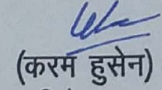 (करम हुसेन)